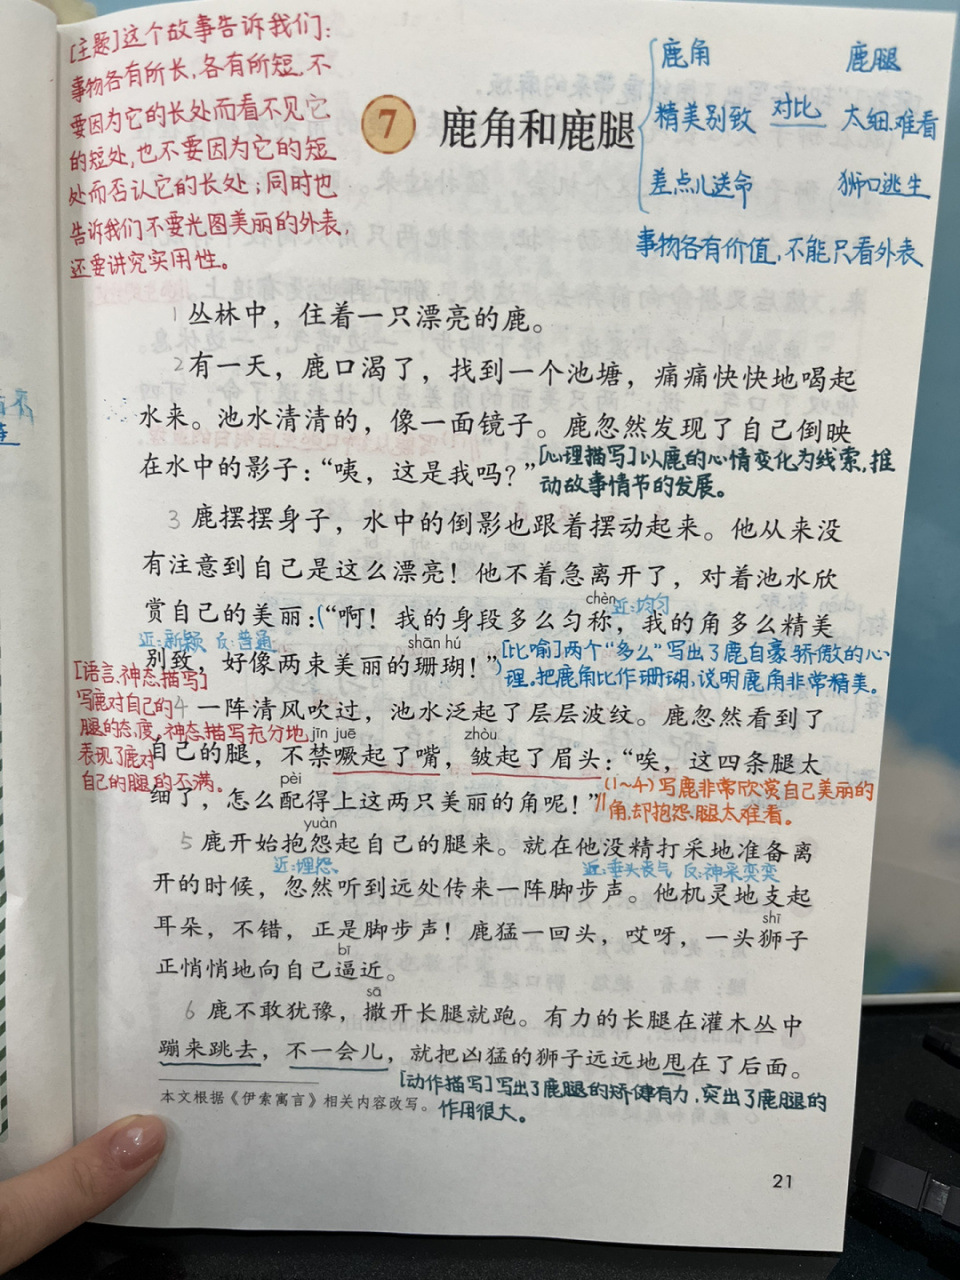 [主题]这个故事告诉我们:
事物各有所长,各有所短,不
要因为它的长处而看不见它
的短处,也不要因为它的短
处而否认它的长处;同时也
告诉我们不要光图美丽的外表,
还要讲究实用性。
7 鹿角和鹿腿
鹿角 鹿腿
精美别致 对比 太细、难看
差点儿送命 狮口逃生
事物各有价值,不能只看外表
1丛林中,住着一只漂亮的鹿。
2有一天,鹿口渴了,找到一个池塘,痛痛快快地喝起
水来。池水清清的,像一面镜子。鹿忽然发现了自己倒映
在水中的影子:“咦,这是我吗?”
[心理描写]以鹿的心情变化为线索,推
动故事情节的发展。
3 鹿摆摆身子,水中的倒影也跟着摆动起来。他从来没
有注意到自己是这么漂亮!他不着急离开了,对着池水欣
chèn 近:均匀
赏自己的美丽:(“啊!我的身段多么匀称,我的角多么精美
近:新颖 反:普通 shān hú
别致,好像两束美丽的珊瑚!”)
[比喻]两个“多么”写出了鹿自豪、骄傲的心
理。把鹿角比作珊瑚,说明鹿角非常精美。
[语言、神态描写]
写鹿对自己的
腿的态度,神态描写充分地
表现了鹿对
自己的腿的不满。
4 一阵清风吹过,池水泛起了层层波纹。鹿忽然看到了
jīn juē zhòu
自己的腿,不禁噘起了嘴,皱起了眉头:“唉,这四条腿太
pèi
细了,怎么配得上这两只美丽的角呢!”
(1~4)写鹿非常欣赏自己美丽的
角,却抱怨腿太难看。
yuàn
5 鹿开始抱怨起自己的腿来。就在他没精打采地准备离
近:埋怨 近:垂头丧气 反:神采奕奕
开的时候,忽然听到远处传来一阵脚步声。他机灵地支起
shī
耳朵,不错,正是脚步声!鹿猛一回头,哎呀,一头狮子
bī
正悄悄地向自己逼近。
sā
6 鹿不敢犹豫,撒开长腿就跑。有力的长腿在灌木丛中
蹦来跳去,不一会儿,就把凶猛的狮子远远地甩在了后面。
[动作描写]写出了鹿腿的矫健有力,突出了鹿腿的
作用很大。
本文根据《伊索寓言》相关内容改写。
21